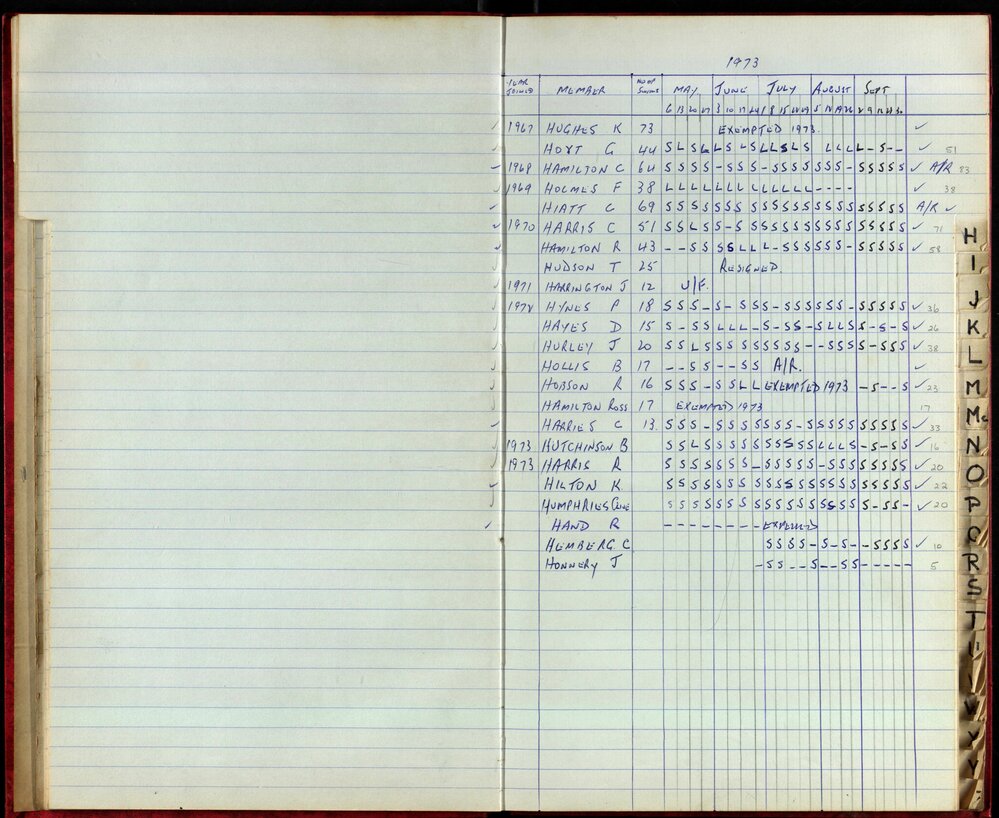 1973
YEAR JOINED MEMBER NO OF SWIMS MAY JUNE JULY AUGUST SEPT
6 13 20 27 3 10 17 24 1 8 15 22 29 5 12 19 26 2 9 16 23 30
1967 HUGHES K 73 EXEMPTED 1973. ✓
HOYT G 44 S L S L L S L S L L S L S L L L L - S - - ✓ 51
1968 HAMILTON C 64 S S S S - S S S - S S S S S S S - S S S S S ✓ A/R 83
1969 HOLMES F 38 L L L L L L L L L L L L L - - - - ✓ 38
HIATT G 69 S S S S S S S S S S S S S S S S S S S S S A/R ✓
1970 HARRIS C 51 S S L S S - S S S S S S S S S S S S S S S ✓ 71
HAMILTON R 43 - - S S S S L L L - S S S S S S - S S S S S ✓ 58
HUDSON T 25 RESIGNED.
1971 HARRINGTON J 12 U/F.
1972 HYNES P 18 S S S - S - S S S - S S S S S S - S S S S S ✓ 36
HAYES D 15 S - S S L L L - S - S S - S L L S S - S - S ✓ 26
HURLEY J 20 S S L S S S S S S S S S S - - S S S S S - S S S ✓ 38
HOLLIS B 17 - - S S - - S S A/R. ✓
HOBSON R 16 S S S - S S L L EXEMPTED 1973 - S - - S ✓ 23
HAMILTON ROSS 17 EXEMPTED 1973 17
HARRIES C 13 S S S - S S S S S S S - S S S S S S S S S S ✓ 33
1973 HUTCHINSON B S S L S S S S S S S S S S L L L S - S - S S ✓ 16
1973 HARRIS R S S S S S S S - S S S S S - S S S S S S S S ✓ 20
HILTON K S S S S S S S S S S S S S S S S S S S S S S ✓ 22
HUMPHRIES CLIVE S S S S S S S S S S S S S S S S S S - S S - ✓ 20
HAND R - - - - - - - - EXPELLED
HEMBERG C S S S S - S - S - - S S S S ✓ 10
HONNERY J - S S - - S - - S S - - - - - 5
H
I
J
K
L
M
Mc
N
O
P
Q
R
S
T
U
V
W
X
Y